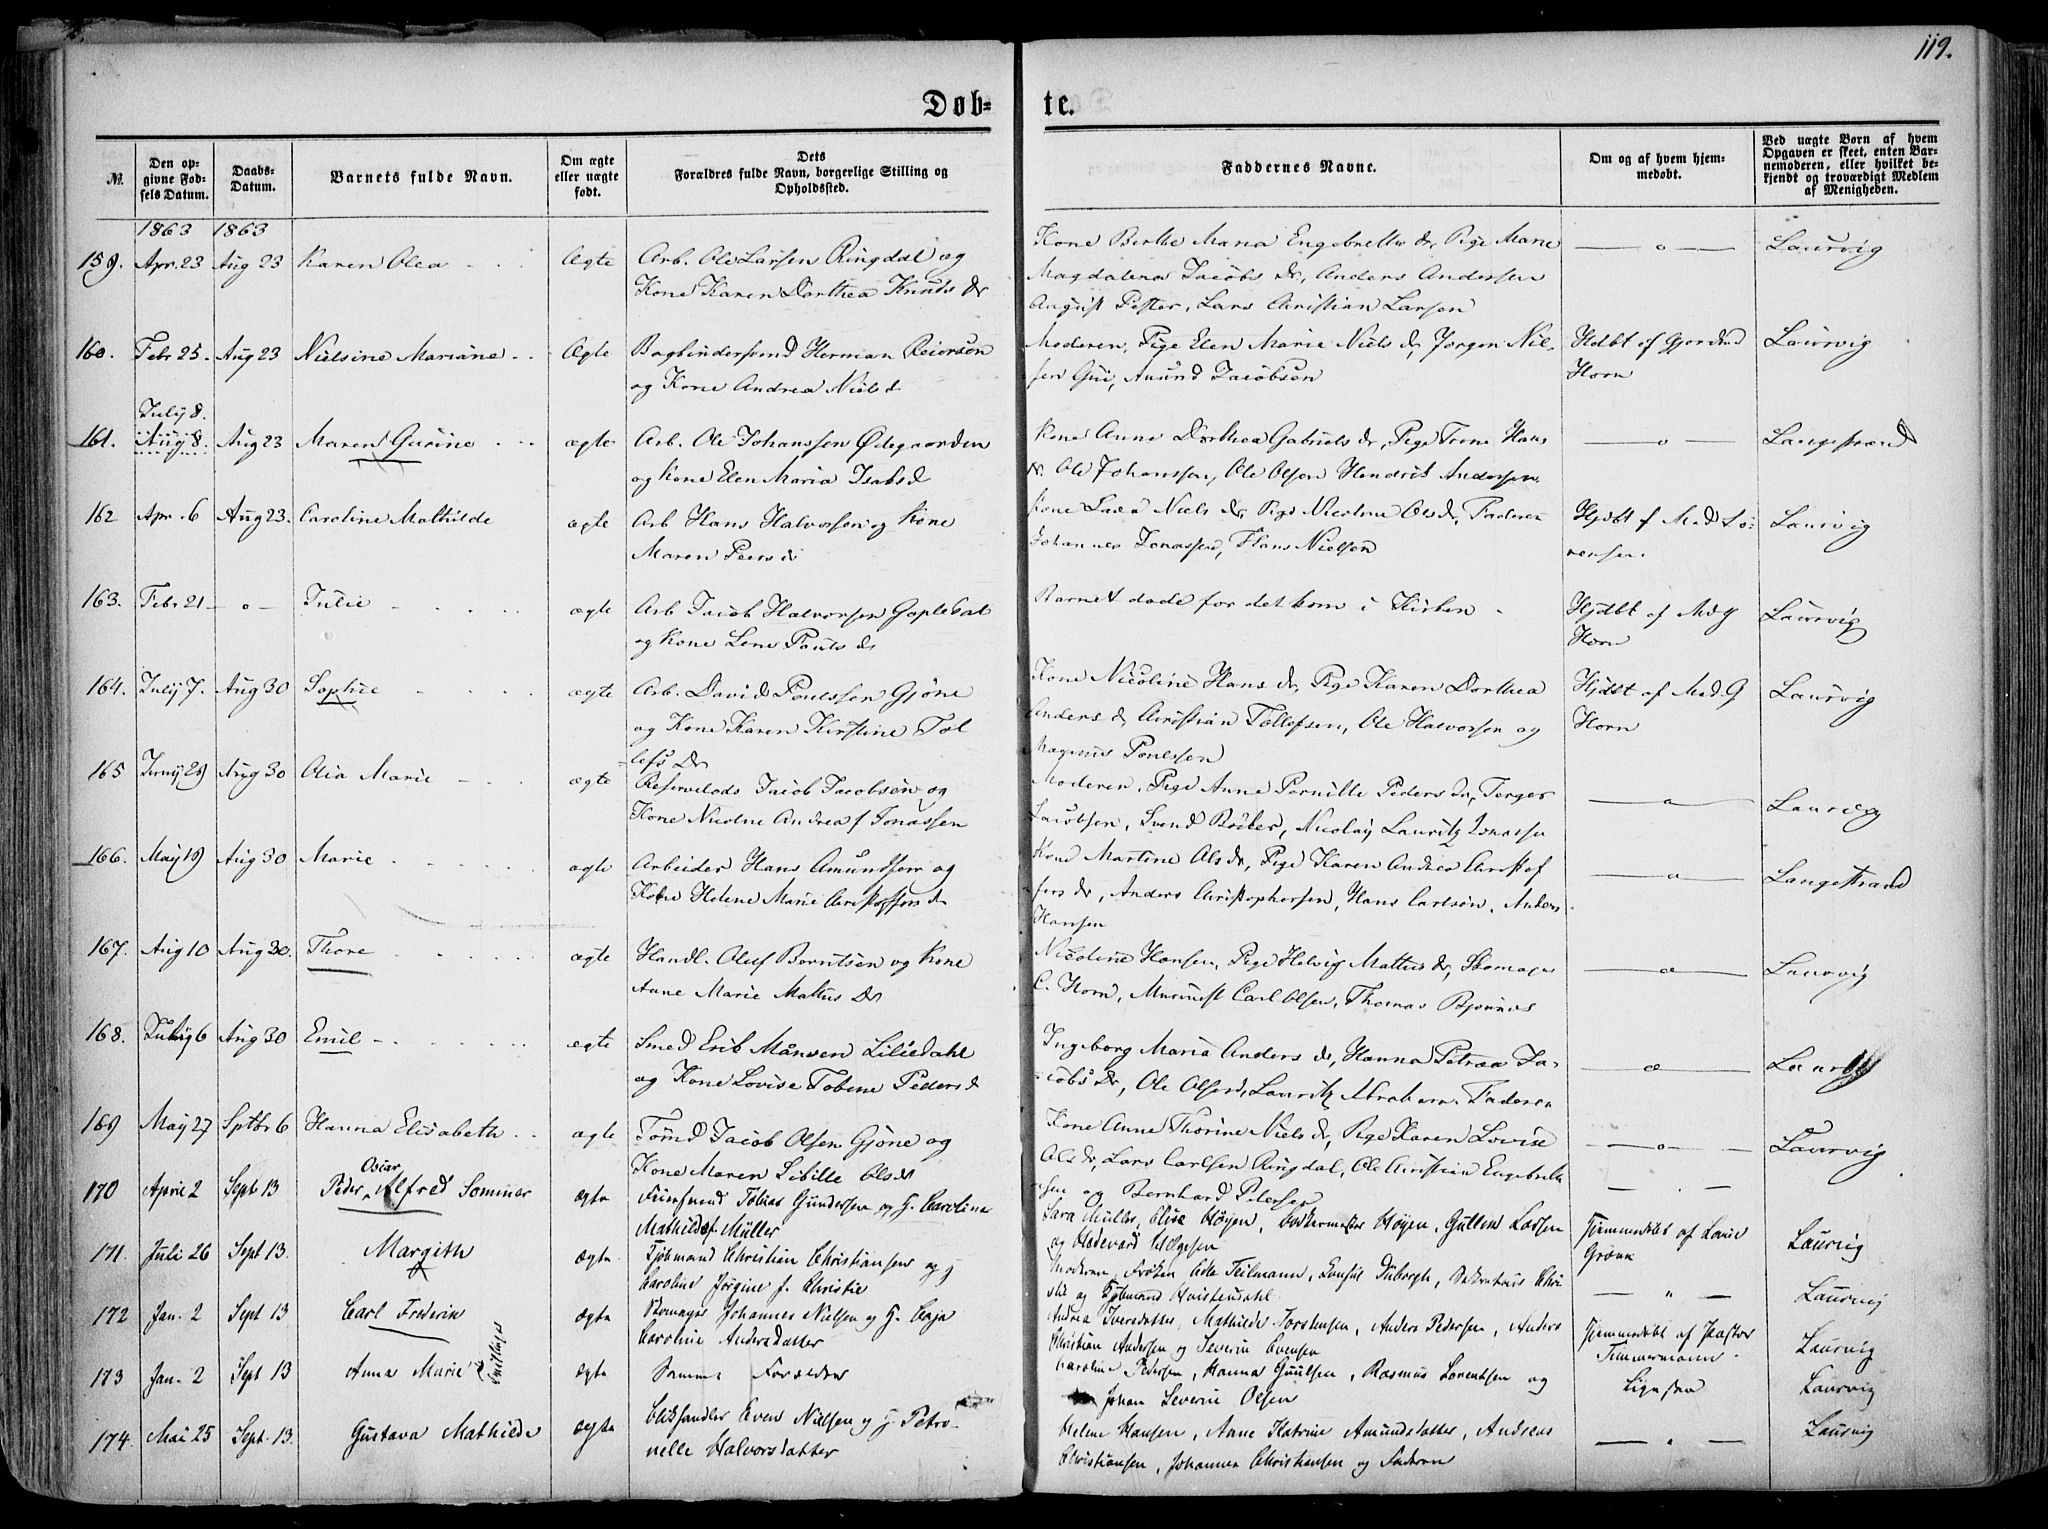 119.
Døb-
te.
№.
Den op-
givne Fød-
sels Datum.
Daabs-
Datum.
Barnets fulde Navn.
Om ægte
eller uægte
født.
Dets
Forældres fulde Navn, borgerlige Stilling og
Opholdssted.
Faddernes Navne.
Om og af hvem hjem-
medøbt.
Ved uægte Børn af hvem
Opgaven er skeet, enten Bar-
nemoderen, eller hvilket be-
kjendt og troværdigt Medlem
af Menigheden.
1863 1863
159. Apr. 23 Aug 23 Karen Olea Ægte Arb. Ole Larsen Ringdal og
Kone Karen Dorthea Knuds Dr
Kone Berthe Maria Engebretts dr, Pige Marie
Magdalena Jacobs Dr, Anders Andersen
August Pester, Lars Christian Larsen
— o — Laurvig
160. Febr 25. Aug 23 Nielsine Mariane Ægte Bogbindersvend Herman Reierson
og Kone Andrea Niels d
Moderen, Pige Elen Marie Niels d, Jørgen Niel-
sen Gui, Amund Jacobsen
Hdbt of Gjordmd
Horn
Laurvig
161. July 8. Aug 8. Aug 23 Maren Gurine ægte Arb. Ole Johanssen Ødegaarden
og Kone Elen Maria Isaks d
Kone Anne Dorthea Gabriels dr, Pige Trine Hans
Dr. Ole Johanssen, Ole Olsen Hendrik Andersen.
— o — Langestrand
162 Apr. 6 Aug 23. Caroline Mathilde ægte Arb Hans Halvorsen og Kone
Maren Peers d
Kone Lara Niels dr, Pige Nicoline Ols dr, Faderen
Johannes Jonassen, Hans Nielsen
Hjdbt f Mad Lo-
rensen.
Laurvig
163. Febr 21 — o — Julie ægte Arb Jacob Halvorsen Gopledal
og Kone Lene Pouls dr
Barnet døde før det kom i Kirken
Hjdbt af Md G
Horn
Laurvig
164. July 7. Aug 30 Sophie ægte Arb. David Poulssen Gjone
og Kone Karen Kirstine Tol
lefs Dr
Kone Nicoline Hans dr, Pige Karen Dorthea
Anders d, Christian Tollefsen, Ole Halvorsen og
Magnus Poulssen
Hjdbt af Mad. G
Horn
Laurvig
165 Juny 29 Aug 30 Olia Marie ægte Reservelods Jacob Jacobsen og
Kone Nicoline Andrea f Jonassen
Moderen, Pige Anne Pernille Peders dr, Terger
Jacobsen, Svend Bøcker, Nicolay Lauritz Jonassen
Laurvig
166. May 19 Aug 30 Marie ægte Arbeider Hans Amundsen og
Kone Helene Marie Christoffers d
Kone Martine Ols dr, Pige Karen Andrea Christof
fers dr, Anders Christophersen, Hans Carlsøn, Anders
Hansen
Langestrand
167. Aug 10 Aug 30. Thore ægte Handl. Oluf Berntsen og Kone
Anne Marie Mattis Dr
Nicoline Hansen, Pige Helvig Mattis dr, Skomager
C. Horn, Murmest Carl Olsen, Thomas Bjønnes
Laurvig
168. July 6 Aug 30 Emil ægte Smed Erik Månsen Liliedahl
og Kone Lovise Tobine Peders d
Ingeborg Maria Anders dr, Hanna Petrea Ja-
cobs Dr, Ole Olsen, Lauritz Abraham. Faderen
Laurvig
169 May 27 Sptbr 6 Hanna Elisabeth ægte Tømd Jacob Olsen Gjone og
Kone Maren Sibille Olsd
Kone Anne Thorine Niels dr, Pige Karen Lovise
Ols dr, Lars Carlsen Ringdal, Ole Christian Engebrekt
sen og Bernhard Petersen
— o — Laurvig
170 April 2 Sept. 13 Peder Oscar Alfred Sommer ægte Feiersvend Tobias Gundersen og H. Caroline
Mathilde f. Müller
Sara Müller, Elise Høyen, Garvermester Høyen, Gullin Larsen
og Hedevard Helgesen
Hjemmedøbt af Lovise
Grønn
Laurvig
171. Juli 26 Sept 13. Margith ægte. Kjøbmand Christian Christiansen og
Caroline Jørgine f. Christie
Moderen, Frøken Teilmann, Consul Duborgh, Christie og Kjøbmand Hvistendahl
— " — Laurvig
172 Jan. 2 Sept 13 Carl Frederik ægte Skomager Johannes Nielsen og H. Caja
Caroline Andersdatter
Andrea Iversdatter, Mathilde Torstensen, Anders Pedersen, Anders
Christian Andersen og Severin Evensen
Hjemmedøbt af Pastor
Timmermann
Laurvig
173 Jan. 2 Sept 13 Anna Marie Tvillinger ægte Samme Forældre
Caroline Pedersen, Hanna Guulsen, Rasmus Lorentsen og
Johan Severin Olsen
Ligesaa
Laurvig
174. Mai 25 Sept. 13. Gustava Mathilde ægte Even Nielsen og Petro-
nelle Halvorsdatter
Helene Hansen, Anne Katrine Amundsdatter, Andreas
Christiansen, Johannes Christiansen og Faderen
— " — Laurvig